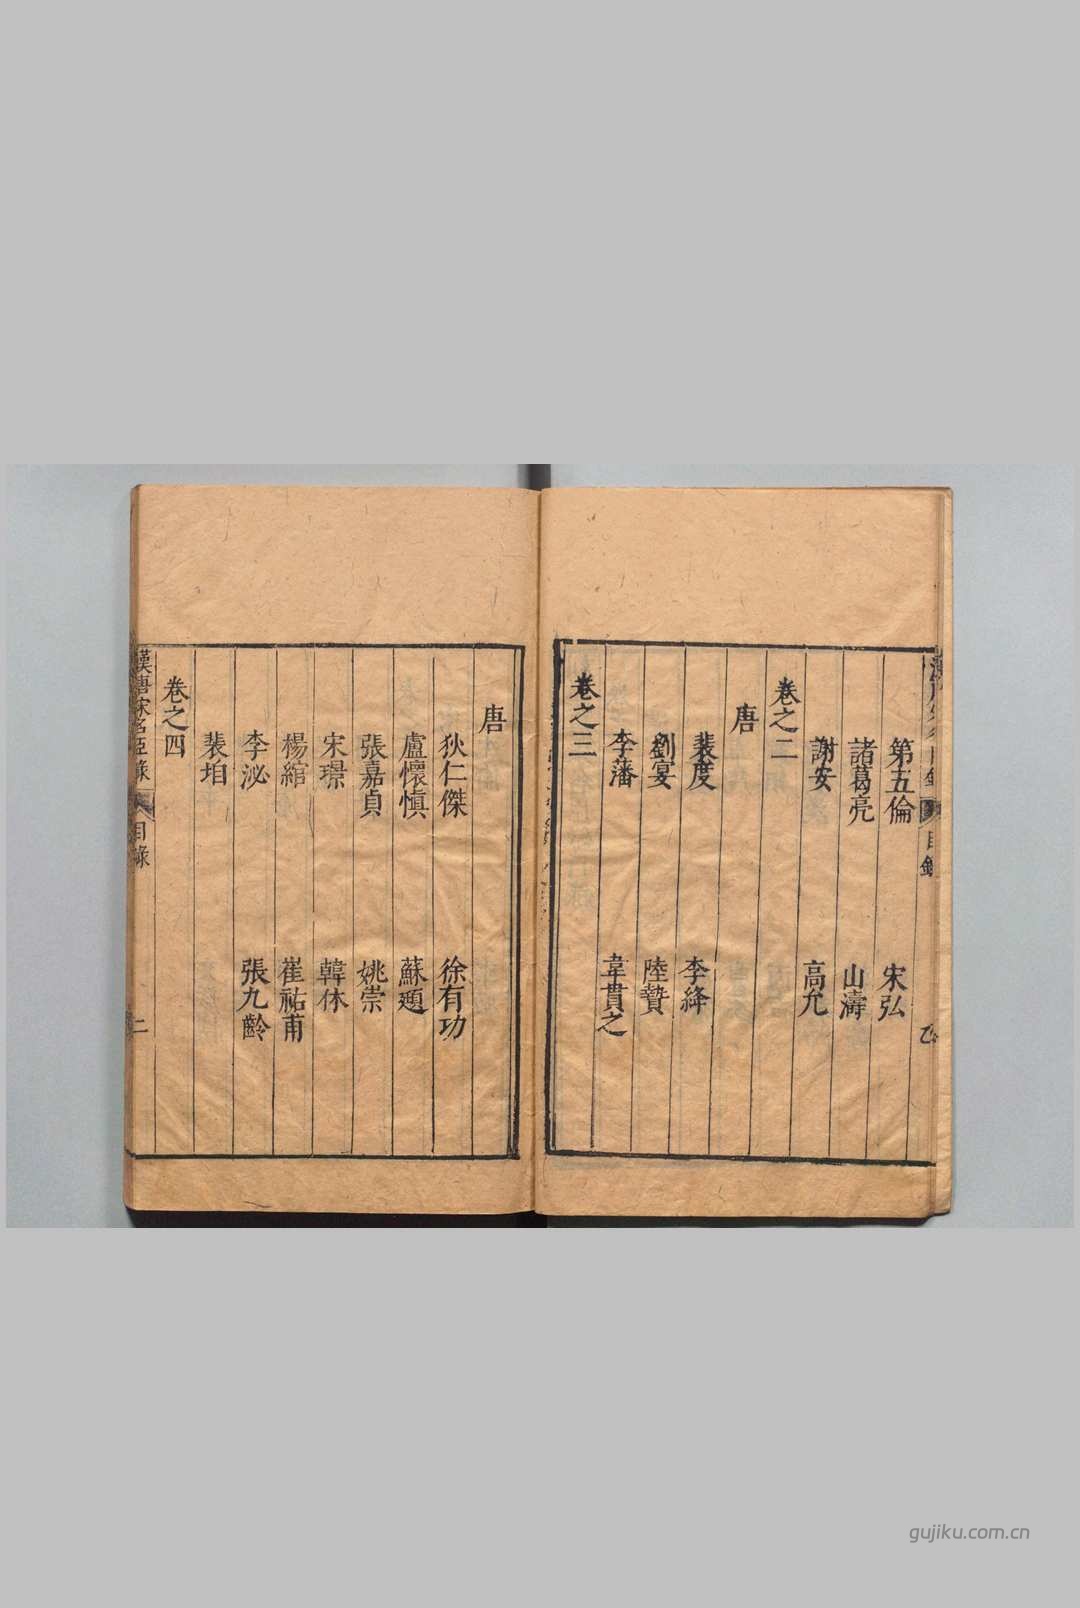 第五倫 宋弘
諸葛亮 山濤
謝安 高允
卷之二
唐
裴度 李絳
劉宴 陸贄
李藩 韋貫之
卷之三
目錄
唐
狄仁傑 徐有功
盧懷慎 蘇頲
張嘉貞 姚崇
宋璟 韓休
楊綰 崔祐甫
李泌 張九齡
裴垍
卷之四
漢唐宋名臣錄 目錄 二
gujiku.com.cn